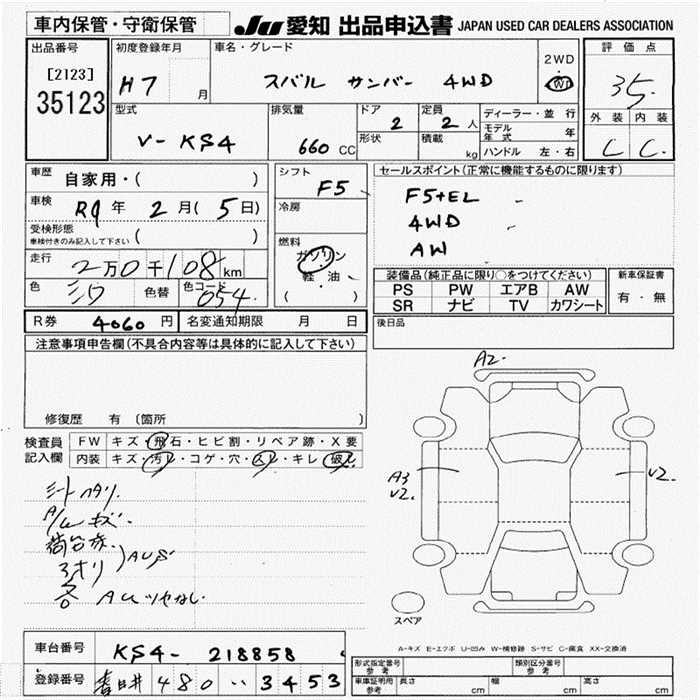 車内保管・守衛保管
JU 愛知 出品申込書 JAPAN USED CAR DEALERS ASSOCIATION
出品番号
[2123]
35123
初度登録年月
H7 月
車名・グレード
スバル サンバー 4WD
2WD
4WD
評価点
35
外装 内装
C C
型式
V-KS4
排気量
660 CC
ドア
2
定員
2 人
形状
積載
kg
ディーラー・並行
モデル年式 年
ハンドル 左・右
車歴
自家用・( )
車検
R9年 2月( 5日)
受検形態
車検付きのみ記入して下さい ( )
走行
2万0千108km
色
シロ
色替
色コード
054
シフト
F5
冷房
燃料
ガソリン
軽・油
( )
セールスポイント(正常に機能するものに限ります)
F5+EL
4WD
AW
装備品(純正品に限り○をつけてください)
PS PW エアB AW
SR ナビ TV カワシート
新車保証書
有・無
R券 4060円 名変通知期限 月 日
後日品
注意事項申告欄(不具合内容等は具体的に記入して下さい)
修復歴 有 (箇所 )
検査員
記入欄
FW キズ・飛石・ヒビ割・リペア跡・X要
内装 キズ・汚レ・コゲ・穴・スレ・キレ・破れ
A2
A3
V2
V2
スペア
A-キズ E-エクボ U-凹み W-補修跡 S-サビ C-腐食 XX-交換済
車台番号
KS4-218858
登録番号
春日井 480 い 3453
形式指定番号
参考
類別区分番号
参考
車庫証明用
参考
長さ cm
幅 cm
高さ cm